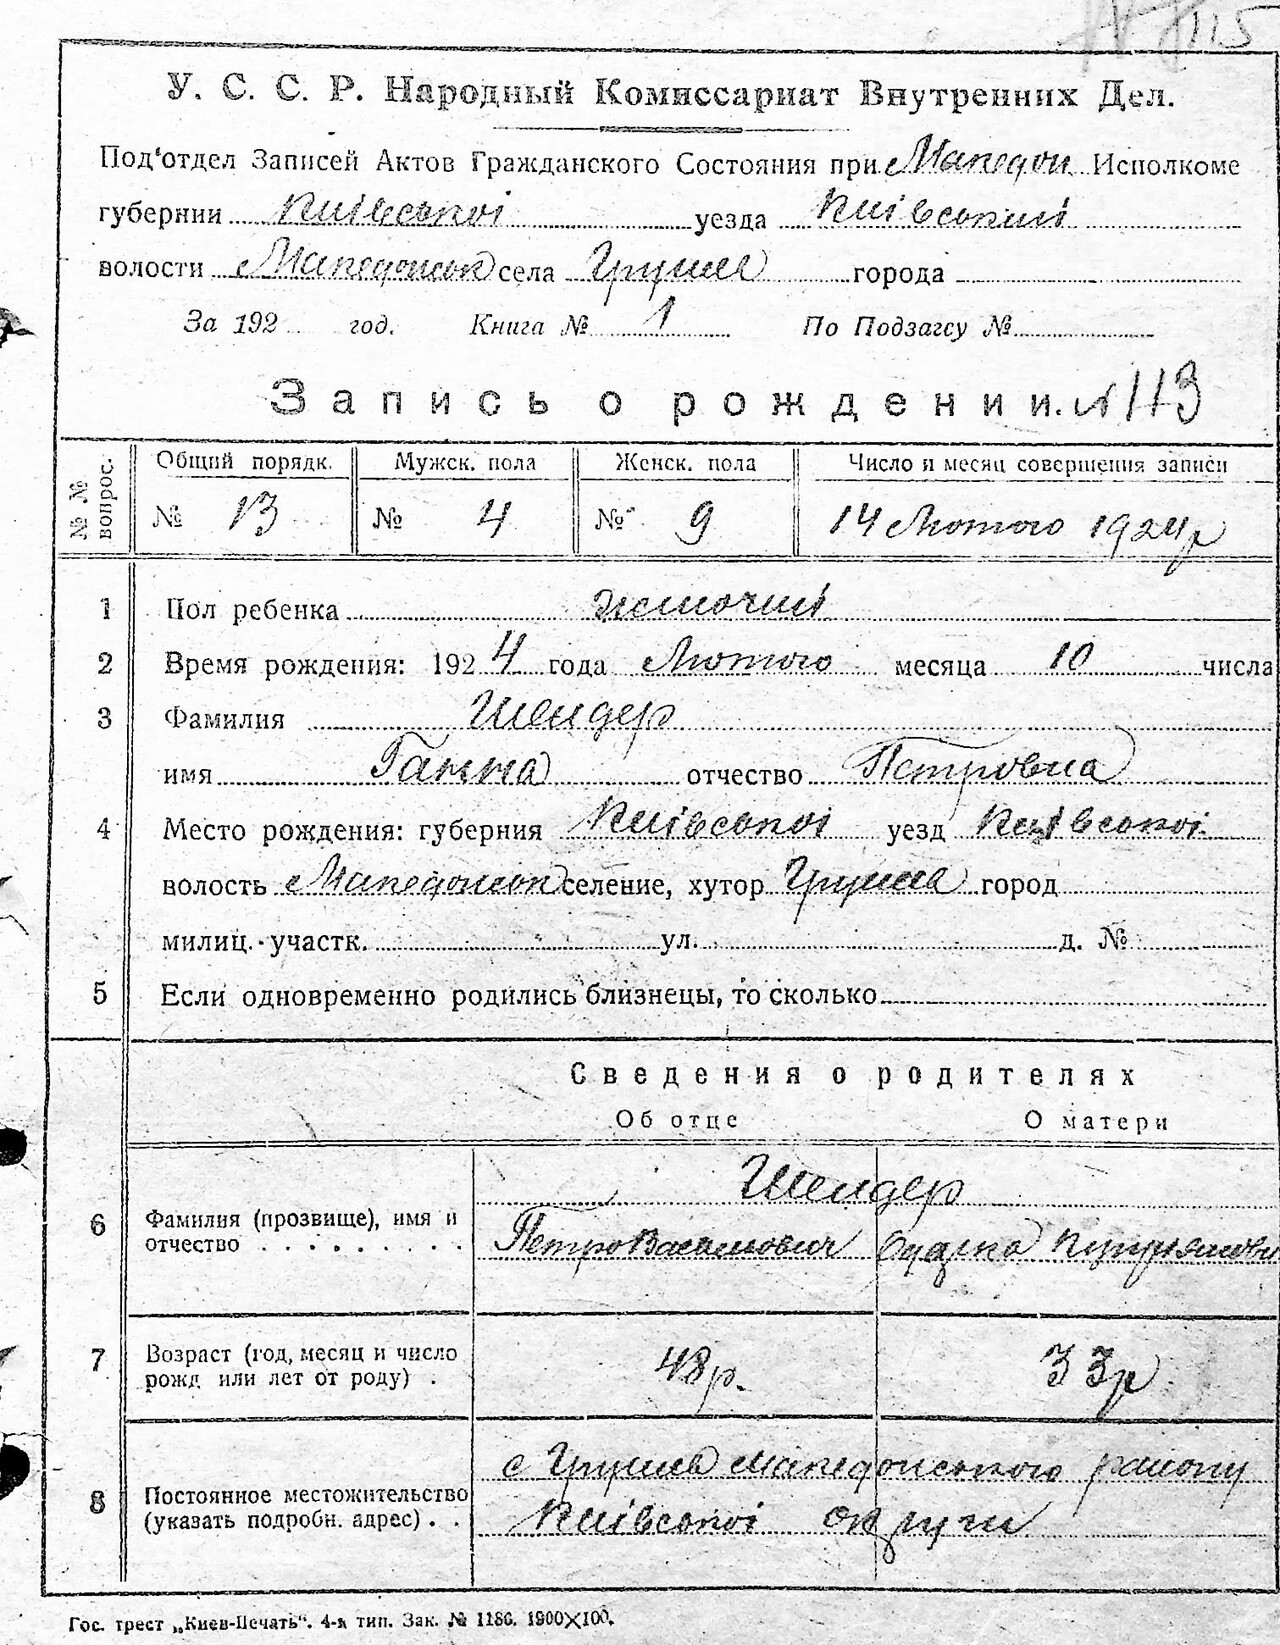 115
У. С. С. Р. Народный Комиссариат Внутренних Дел.
Под'отдел Записей Актов Гражданского Состояния при Македон Исполкоме
губернии Київської уезда Київський
волости Македонськ села Грушів города
За 192 год. Книга № 1 По Подзагсу №
Запись о рождении. № 113
№ № вопрос. Общий порядк. Мужск. пола Женск. пола Число и месяц совершения записи
№ 13 № 4 № 9 14 Лютого 1924 р
1 Пол ребенка жіночий
2 Время рождения: 1924 года Лютого месяца 10 числа
3 Фамилия Шендер
имя Ганна отчество Петровна
4 Место рождения: губерния Київської уезд Київської
волость Македонськ селение, хутор Грушів город
милиц. участк. ул. д. №
5 Если одновременно родились близнецы, то сколько
Сведения о родителях
Об отце О матери
Шендер
6 Фамилия (прозвище), имя и отчество Петро Васильович
7 Возраст (год, месяц и число рожд или лет от роду) 48 р. 33 р
с Грушів Македонського району
8 Постоянное местожительство (указать подробн. адрес) Київської округи
Гос. трест „Киев-Печать“. 4-я тип. Зак. № 1186. 1900×100.